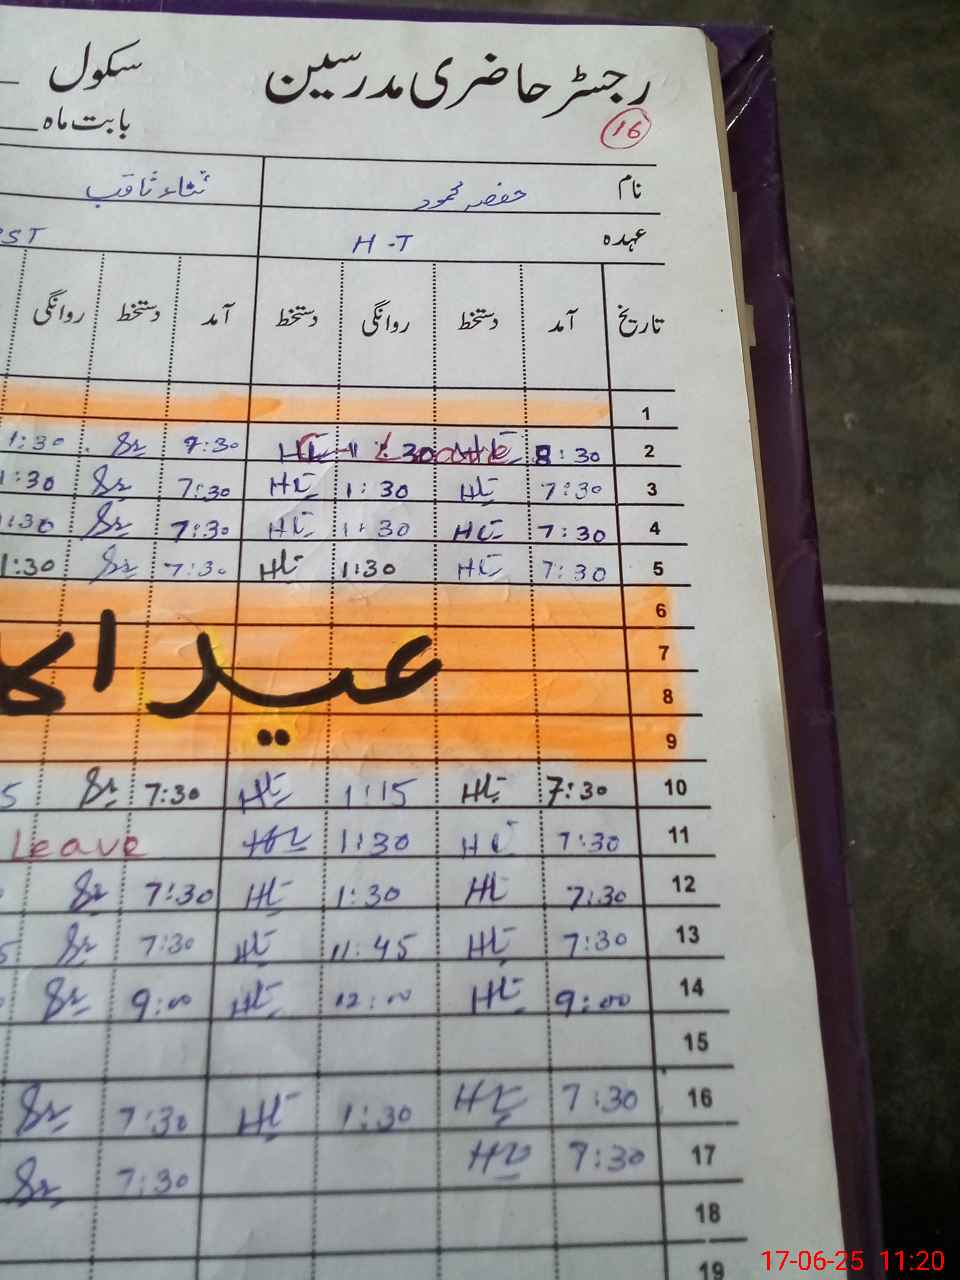 رجسٹر حاضری مدرسین سکول
16 بابت ماہ
نام حفصہ محمود ثناء ثاقب
عہدہ H-T PST
تاریخ آمد دستخط روانگی دستخط آمد دستخط روانگی
1
2 8:30 HT 30 HT 7:30 1:30
3 7:30 HT 1:30 HT 7:30 1:30
4 7:30 HT 1:30 HT 7:30 1:30
5 7:30 HT 1:30 HT 7:30 1:30
6
7 عید
8
9
10 7:30 HT 1:15 HT 7:30 5
11 7:30 HT 1:30 HT Leave
12 7:30 HT 1:30 HT 7:30
13 7:30 HT 11:45 HT 7:30 5
14 9:00 HT 12:00 HT 9:00
15
16 7:30 HT 1:30 HT 7:30
17 7:30 HT 7:30
18
19
17-06-25 11:20